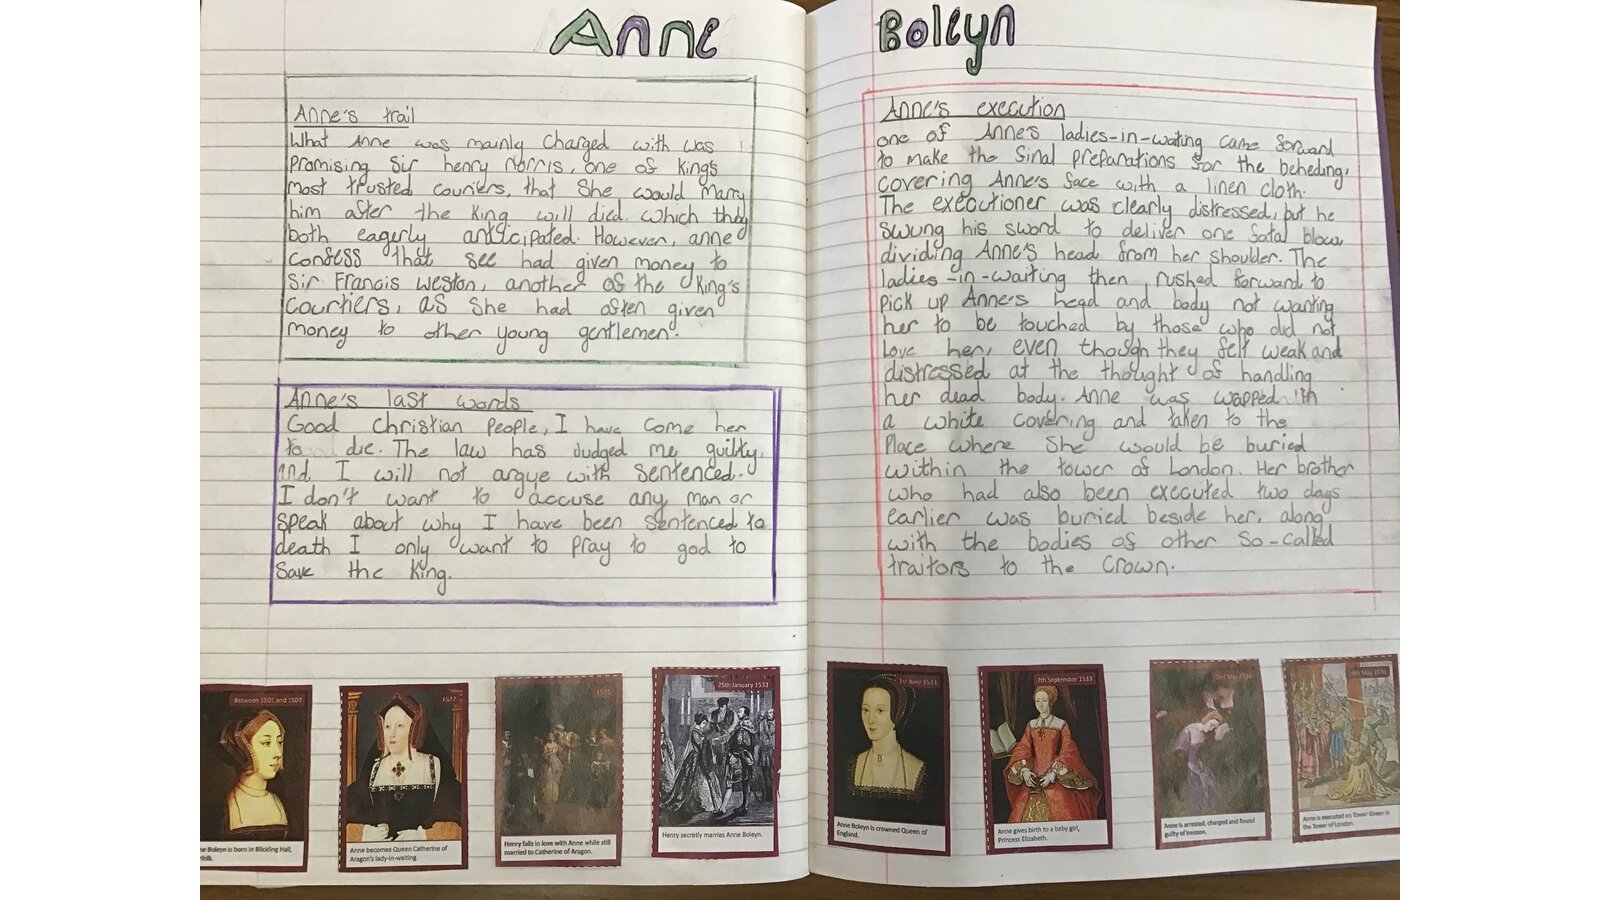 Anne Boleyn
Anne's trail
What Anne was mainly Charged with was
Promising Sir henry Norris, one of King's
most trusted couriers, that She would Marry
him after the King will died. Which they
both eagerly anticipated. However, anne
Confess that see had given money to
Sir Francis Weston, another of the King's
Courtiers, as she had often given
money to other young gentlemen.
Anne's last words
Good Christian People, I have come her
to die. The law has Judged me guilty,
and I will not argue with sentenced.
I don't want to accuse any man or
Speak about why I have been sentenced to
death I only want to Pray to god to
Save the King.
Anne's execution
one of Anne's ladies-in-waiting came forward
to make the final preparations for the beheding,
covering Anne's face with a linen cloth.
The executioner was clearly distressed, but he
swung his sword to deliver one fatal blow,
dividing Anne's head from her shoulder. The
ladies-in-waiting then rushed forward to
Pick up Anne's head and body not wanting
her to be touched by those who did not
Love her, even though they felt weak and
distressed at the thought of handling
her dead body. Anne was wapped in
a white covering and taken to the
Place where She would be buried
within the tower of London. Her brother
who had also been executed two days
earlier was buried beside her, along
with the bodies of other So-called
traitors to the Crown.
Between 1501 and 1507
Boleyn is born in Blickling Hall,
1522
Anne becomes Queen Catherine of
Aragon's lady-in-waiting.
Henry falls in love with Anne while still
married to Catherine of Aragon.
25th January 1533
Henry secretly marries Anne Boleyn.
1st June 1533
Anne Boleyn is crowned Queen of
England.
7th September 1533
Anne gives birth to a baby girl,
Princess Elizabeth.
2nd May 1536
Anne is arrested, charged and found
guilty of treason.
May 1536
Anne is executed on Tower Green in
the Tower of London.